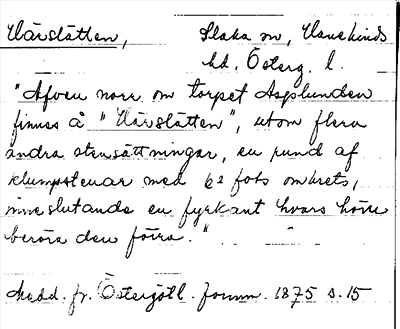 Vårslätten, Slaka sn, Hanekinds
hd. Österg. l.
"Äfven norr om torpet Asplunden
finnes å "Vårslätten", utom flera
andra stensättningar, en rund af
klumpstenar med 62 fots omkrets,
inneslutande en fyrkant hvars hörn
beröra den förra."
Medd. fr. Östergötl. fornm. 1875 s. 15